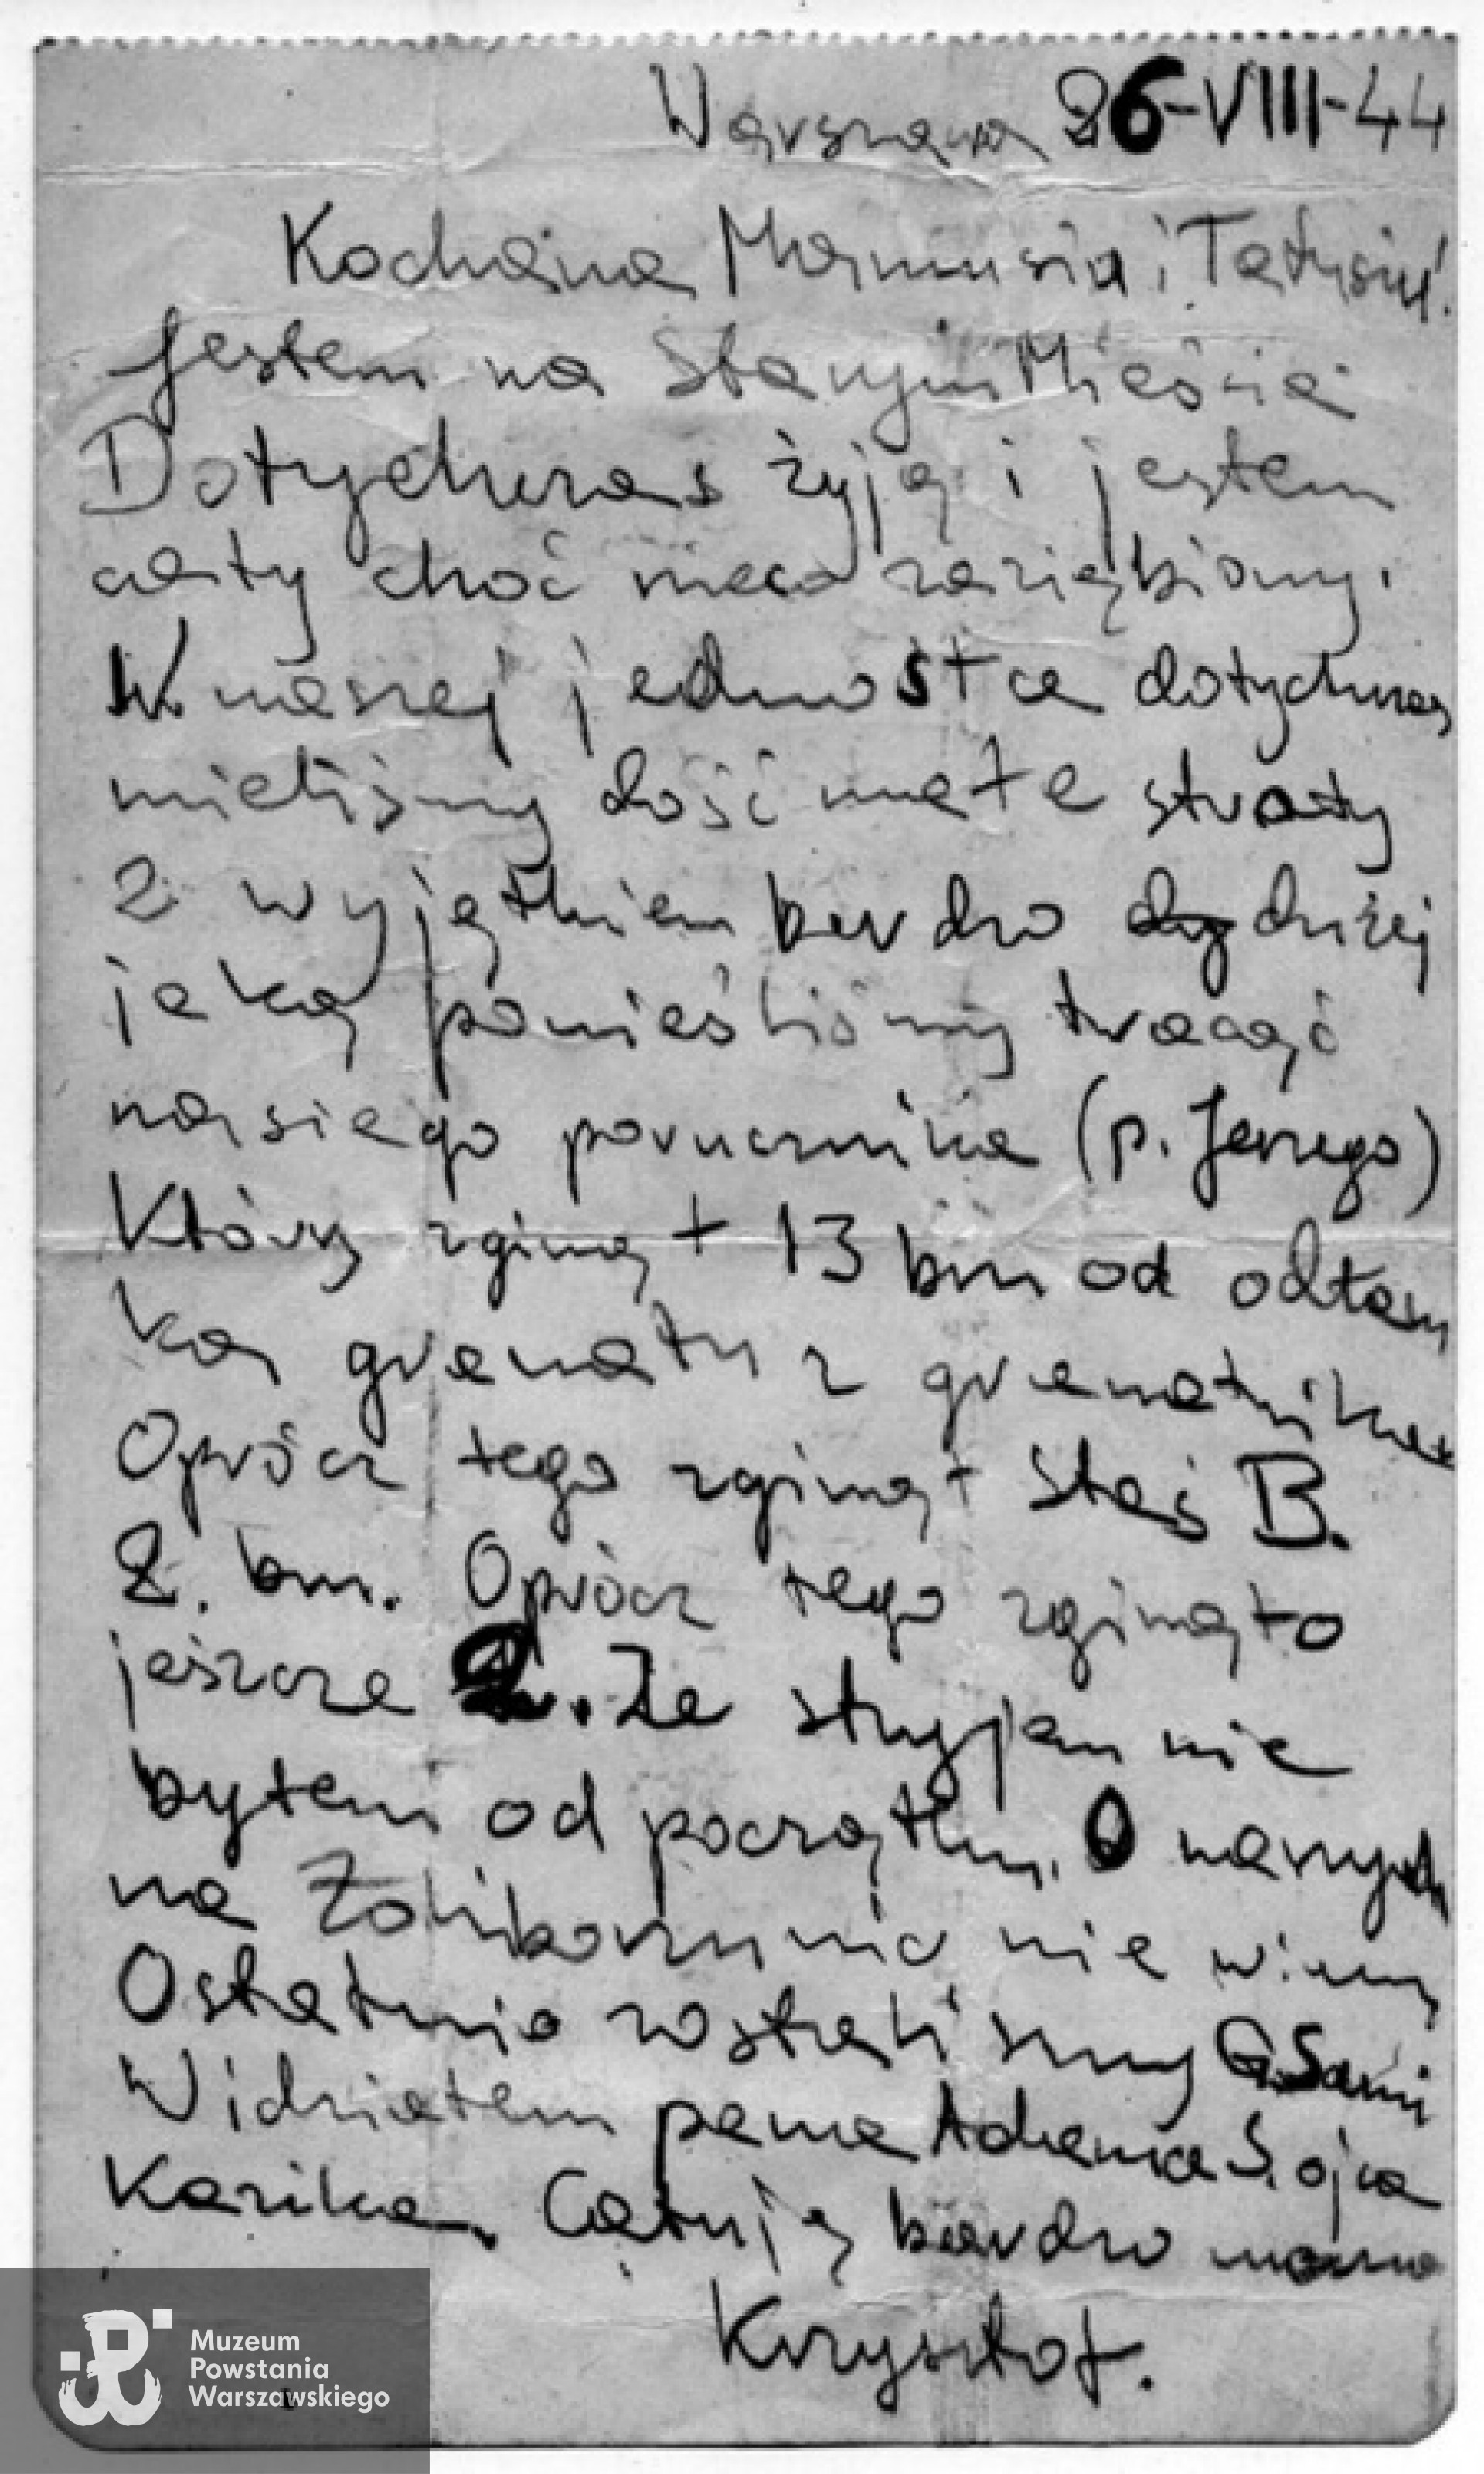 Warszawa 26-VIII-44
Kochana Mamusiu i Tatusiu!
Jestem na Starym Mieście
Dotychczas żyję i jestem
cały choć nieco zaziębiony.
W naszej jednostce dotychczas
mieliśmy dość małe straty
z wyjątkiem bardzo dużej
jaką ponieśliśmy tracąc
naszego porucznika (p. Jerzego)
Który zginął 13 bm od odłam
ka granatu z granatnika
Oprócz tego zginął Staś B.
2. bm. Oprócz tego zginęło
jeszcze 2. Ze stryjem nie
byłem od początku. O naszych
na Żoliborzu nic nie wiemy
Ostatnio zostaliśmy
Widziałem pana Adama S. ojca
Kazika. Całuję bardzo mocno
Krzysztof.
Muzeum
Powstania
Warszawskiego